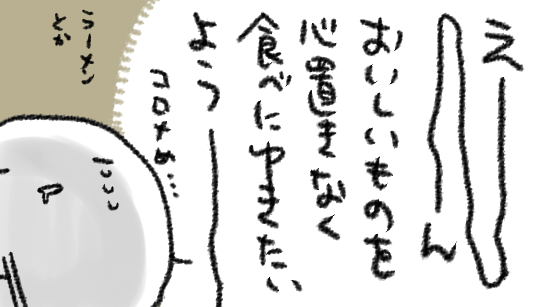 えーーーん
おいしいものを
心置きなく
食べに中きたい
ようー
コロメめ…
ラーメン
とか